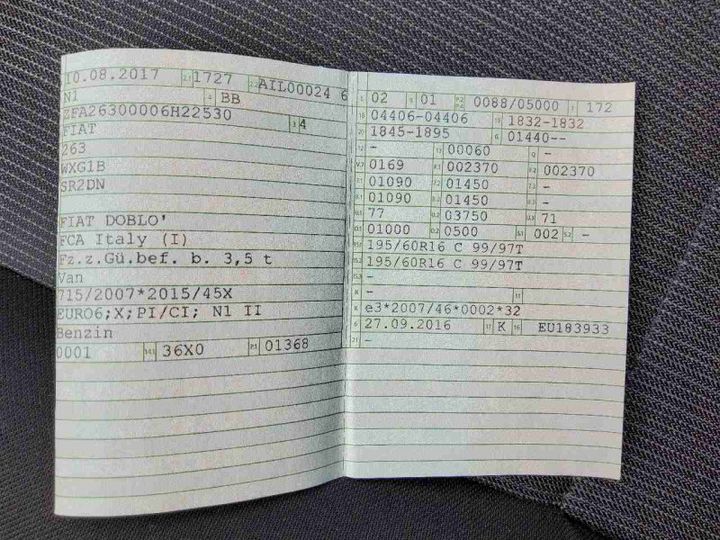 10.08.2017 2.1 1727 2.2 AIL00024 6
N1 BB
ZFA26300006H22530 3 4
FIAT
263
WXG1B
SR2DN
FIAT DOBLO'
FCA Italy (I)
Fz.z.Gü.bef. b. 3,5 t
Van
715/2007*2015/45X
EURO6;X;PI/CI; N1 II
Benzin
0001 14.1 36X0 P.1 01368
02 9 01 0088/05000 172
18 04406-04406 19 1832-1832
20 1845-1895 G 01440--
- 13 00060 Q -
V.7 0169 F.1 002370 F.2 002370
01090 01450 -
01090 01450 -
U.1 77 U.2 03750 U.3 71
O.1 01000 O.2 0500 S.1 002 S.2 -
195/60R16 C 99/97T
195/60R16 C 99/97T
-
-
K e3*2007/46*0002*32
6 27.09.2016 17 K 16 EU183933
21 -